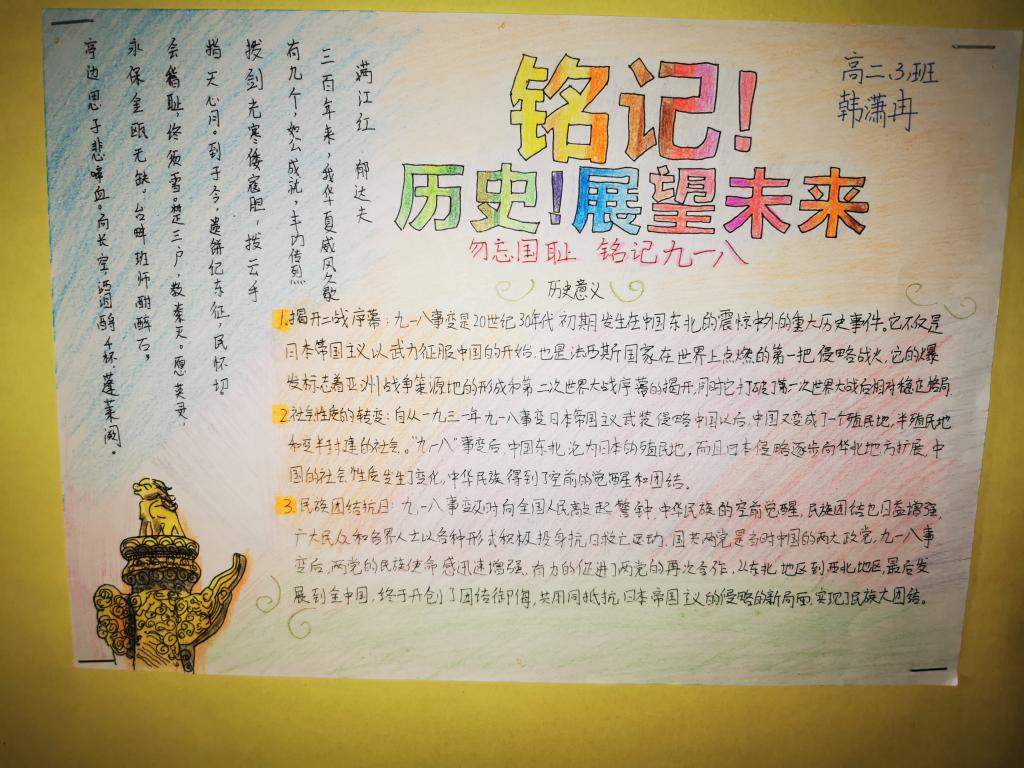 铭记!
高二.3.班
韩潇冉
历史!展望未来
勿忘国耻 铭记九一八
满江红 郁达夫
三百年来,我华夏威风久歇
有几个,如公成就,丰功伟烈
拨剑光寒倭寇胆,拨云手
指天心问。到于今,遗饼纪东征,民怀切。
会稽耻,终须雪。楚三户,教秦灭。愿英灵,
永保金瓯无缺。台畔班师酣醉石,
亭边思子悲啼血。向长空,洒泪酹千杯,蓬莱阙。
历史意义
1.揭开二战序幕:九一八事变是20世纪30年代初期发生在中国东北的震惊中外的重大历史事件。它不仅是
日本帝国主义以武力征服中国的开始,也是法西斯国家在世界上点燃的第一把侵略战火,它的爆
发标志着亚洲战争策源地的形成和第二次世界大战序幕的揭开,同时它打破了第一次世界大战后相对稳定格局.
2.社会性质的转变:自从一九三一年九一八事变日本帝国主义武装侵略中国以后,中国又变成了一个殖民地,半殖民地
和变半封建的社会。"九一八"事变后,中国东北沦为日本的殖民地,而且日本侵略逐步向华北地方扩展,中
国的社会性质发生了变化,中华民族得到了空前的觉醒和团结。
3.民族团结抗日:九一八事变及时向全国人民敲起警钟,中华民族的空前觉醒,民族团结也日益增强,
广大民众和各界人士以各种形式积极投身抗日救亡运动,国共两党是当时中国的两大政党,九一八事
变后,两党的民族使命感迅速增强,有力的促进了两党的再次合作,从东北地区到西北地区最后发
展到全中国,终于开创了团结御侮,共用同抵抗日本帝国主义的侵略的新局面,实现了民族大团结。